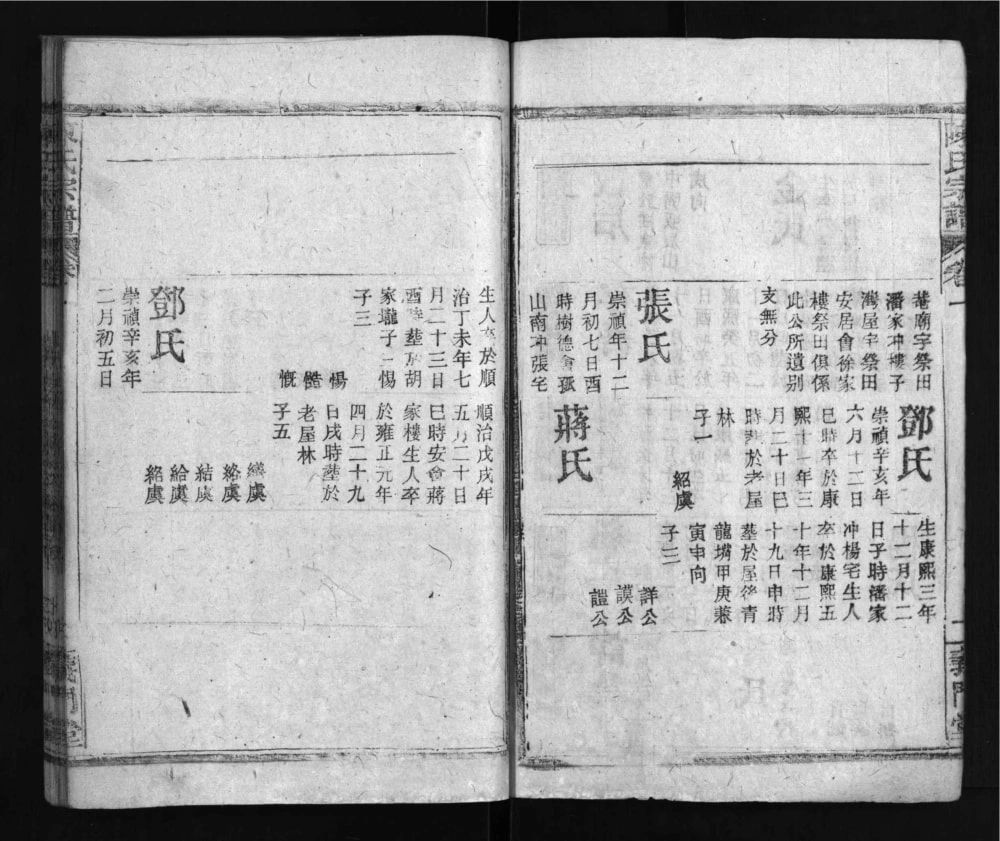 陳氏宗譜
卷一
義門堂
菴廟宇祭田
潘家冲樓子
灣屋宇祭田
安居會徐家
樓祭田俱係
此公所遺別
支無分
張氏
崇禎年十二
月初七日酉
時樹德會孤
山南冲張宅
鄧氏
崇禎辛亥年
六月十二日
巳時卒於康
熙十一年三
月二十日巳
時塟於老屋
林
子一
紹虞
蔣氏
生康熙三年
十二月十二
日子時潘家
冲楊宅生人
卒於康熙五
十年十二月
十九日申時
塟於屋後青
龍嘴甲庚兼
寅申向
子三
詳公
謨公
諠公
生人卒於順
治丁未年七
月二十三日
酉時塟於胡
家壠子一惕
子三
惕
慨
鄧氏
崇禎辛亥年
二月初五日
順治戊戌年
五月二十日
巳時安會蔣
家樓生人卒
於雍正元年
四月二十九
日戌時塟於
老屋林
子五
結虞
給虞
陳氏宗譜
卷一
義門堂